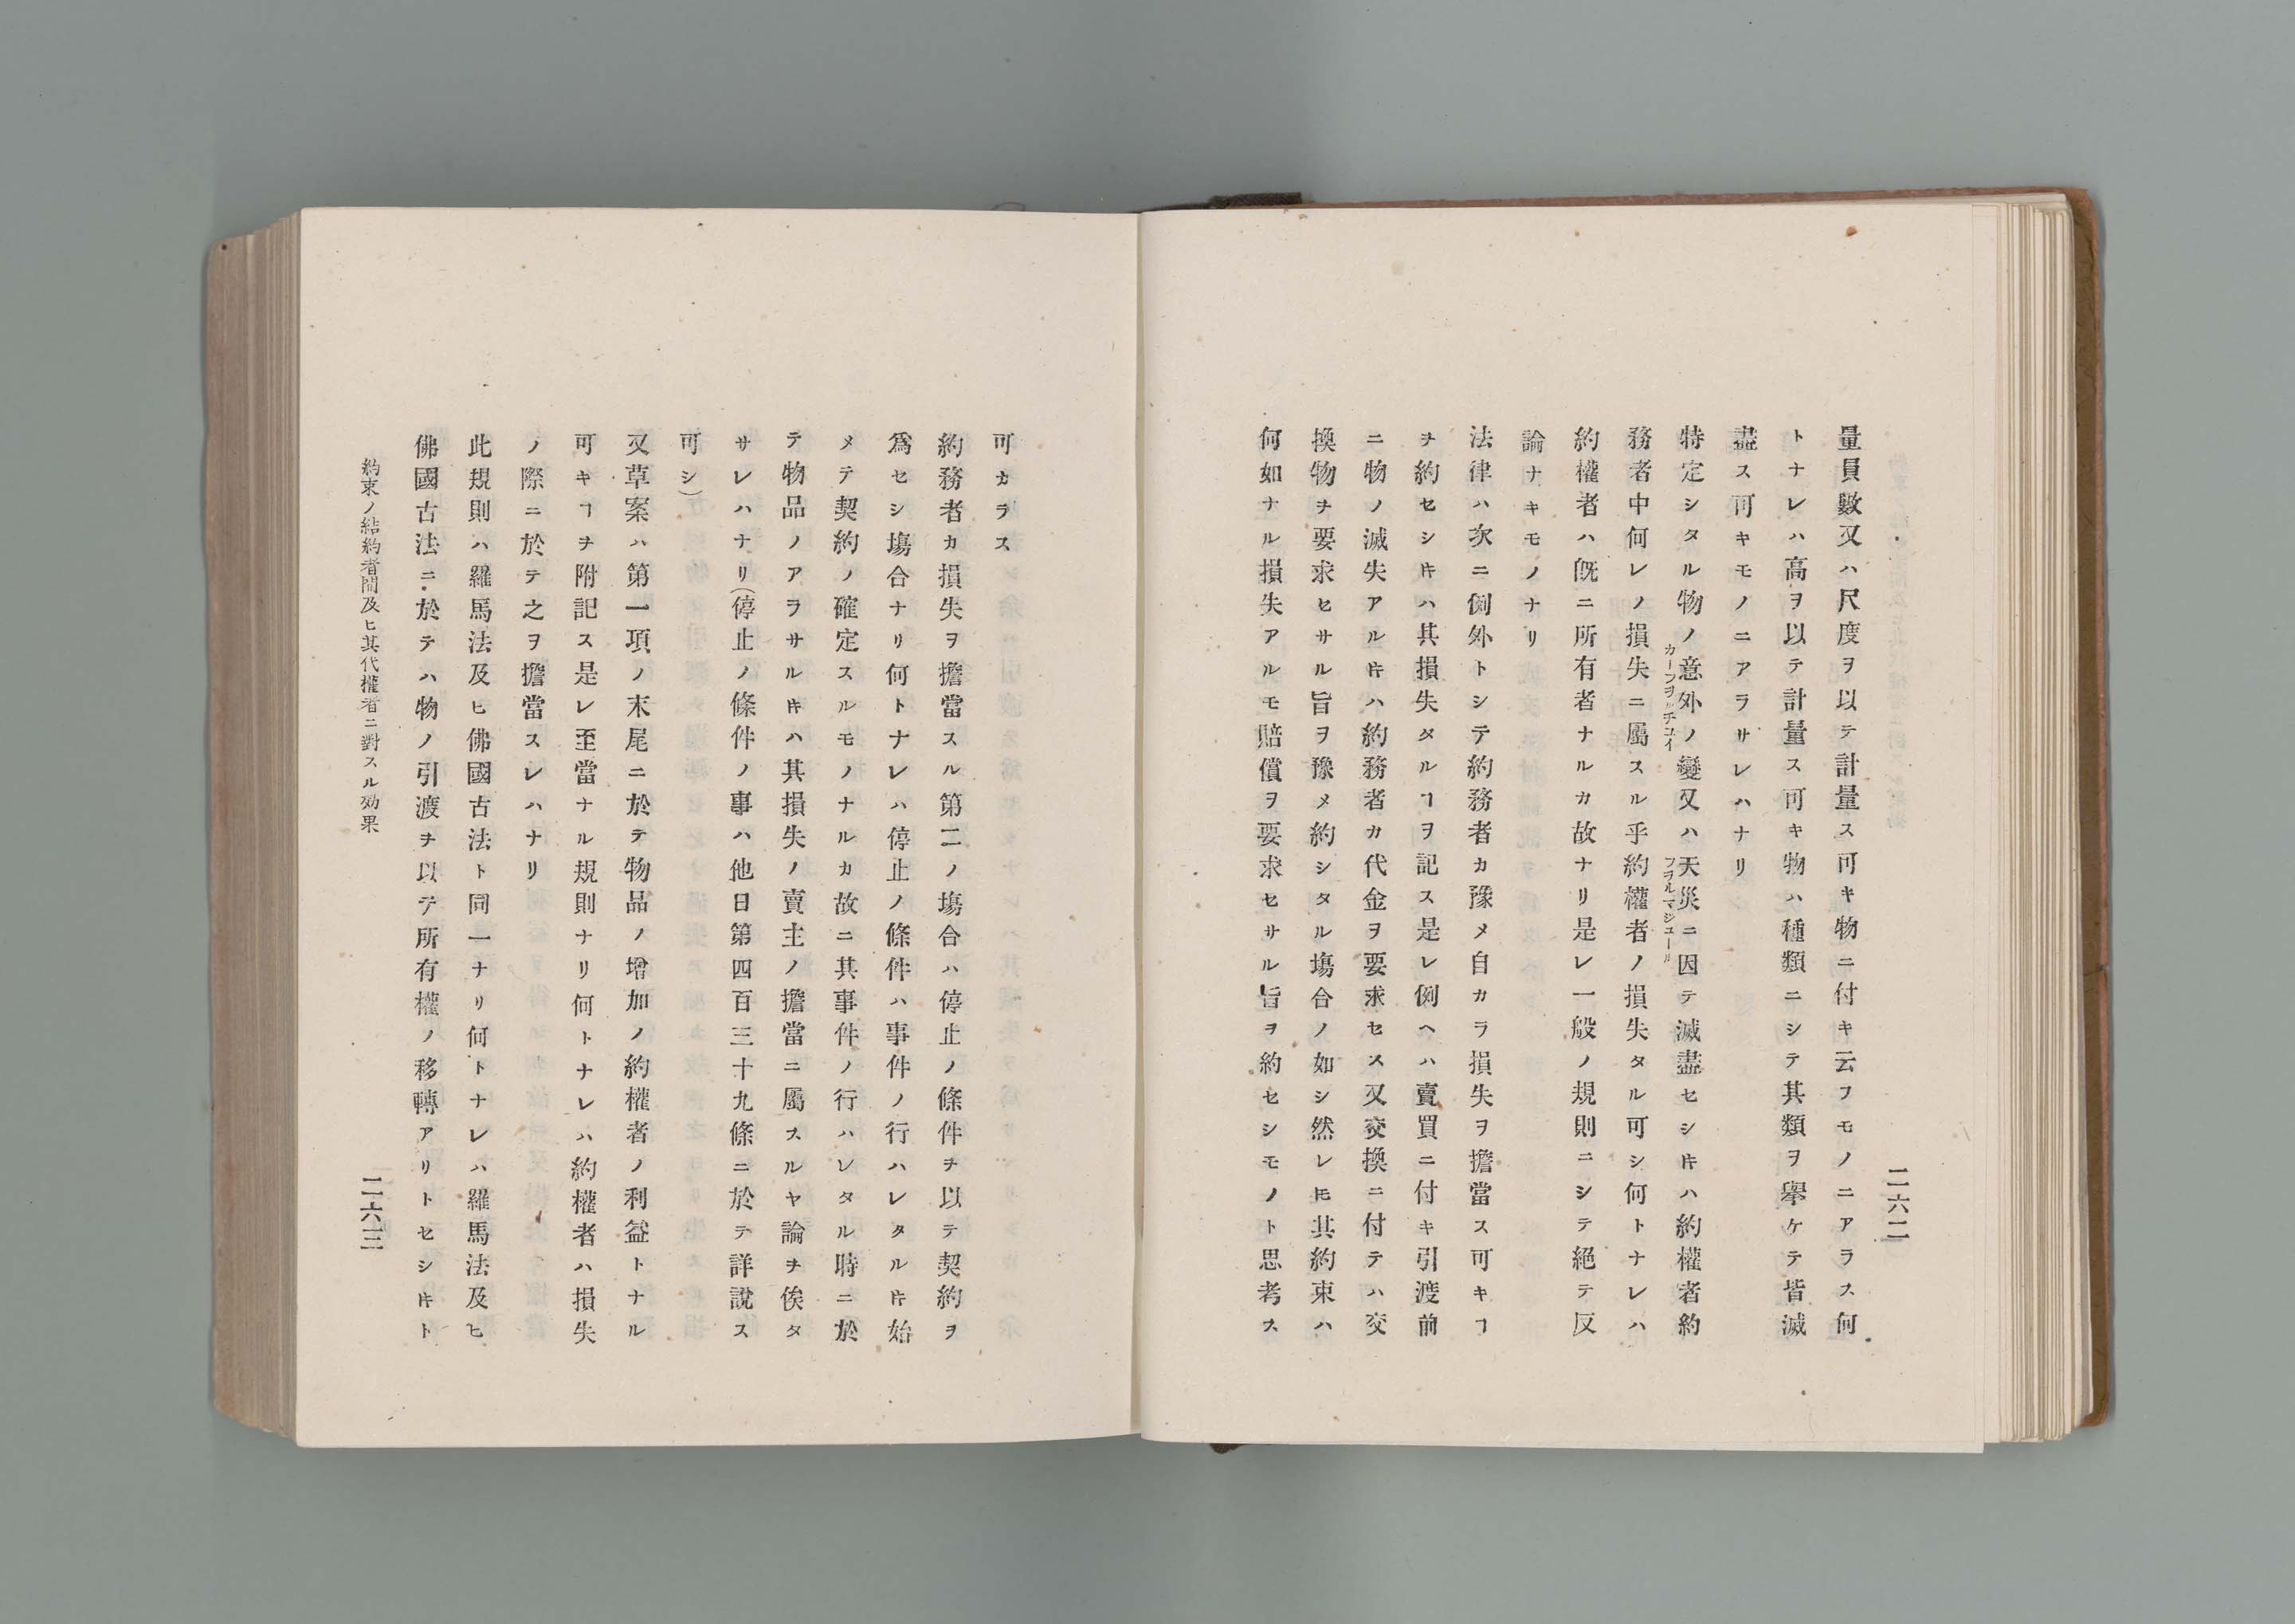 二六二
量員數又ハ尺度ヲ以テ計量ス可キ物ニ付キ云フモノニアラス何
トナレハ高ヲ以テ計量ス可キ物ハ種類ニシテ其類ヲ擧ケテ皆滅
盡ス可キモノニアラサレハナリ
特定シタル物ノ意外ノ變又ハ天災ニ因テ滅盡セシ𪜈ハ約權者約
カーフヲルチユイ
フヲルスマジユール
務者中何レノ損失ニ屬スル乎約權者ノ損失タル可シ何トナレハ
約權者ハ既ニ所有者ナルカ故ナリ是レ一般ノ規則ニシテ絕テ反
論ナキモノナリ
法律ハ次ニ例外トシテ約務者カ豫メ自カラ損失ヲ擔當ス可キヿ
ヲ約セシ𪜈ハ其損失タルヿヲ記ス是レ例ヘハ賣買ニ付キ引渡前
ニ物ノ滅失アル𪜈ハ約務者カ代金ヲ要求セス又交換ニ付テハ交
換物ヲ要求セサル旨ヲ豫メ約シタル塲合ノ如シ然レ𪜈其約束ハ
何如ナル損失アルモ賠償ヲ要求セサル旨ヲ約セシモノト思考ス
可カラス
約務者カ損失ヲ擔當スル第二ノ塲合ハ停止ノ條件ヲ以テ契約ヲ
爲セシ塲合ナリ何トナレハ停止ノ條件ハ事件ノ行ハレタル𪜈始
メテ契約ノ確定スルモノナルカ故ニ其事件ノ行ハレタル時ニ於
テ物品ノアラサル𪜈ハ其損失ノ賣主ノ擔當ニ屬スルヤ論ヲ俟タ
サレハナリ(停止ノ條件ノ事ハ他日第四百三十九條ニ於テ詳說ス
可シ)
又草案ハ第一項ノ末尾ニ於テ物品ノ增加ノ約權者ノ利益トナル
可キヿヲ附記ス是レ至當ナル規則ナリ何トナレハ約權者ハ損失
ノ際ニ於テ之ヲ擔當スレハナリ
此規則ハ羅馬法及ヒ佛國古法ト同一ナリ何トナレハ羅馬法及ヒ
佛國古法ニ於テハ物ノ引渡ヲ以テ所有權ノ移轉アリトセシ𪜈ト
約束ノ結約者間及ヒ其代權者ニ對スル効果
二六三